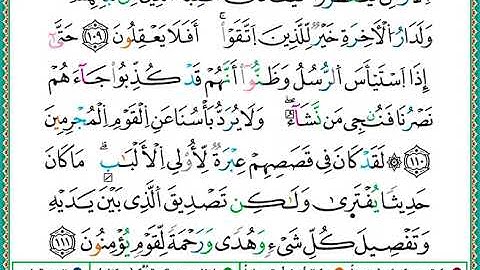 وَلَدَارُ الْأَخِرَةِ خَيْرٌ لِّلَّذِينَ اتَّقَوْا أَفَلَا يَعْقِلُونَ ١٠٩ حَتَّىٰ
إِذَا اسْتَيْأَسَ الرُّسُلُ وَظَنُّوا أَنَّهُمْ قَدْ كُذِّبُوا جَاءَهُمْ
نَصْرُنَا فَنُنجِى مَن نَّشَاءُ وَلَا يُرَدُّ بَأْسُنَا عَنِ الْقَوْمِ الْمُجْرِمِينَ
١١٠ لَقَدْ كَانَ فِى قَصَصِهِمْ عِبْرَةٌ لِّأُولِى الْأَلْبَابِ مَا كَانَ
حَدِيثًا يُفْتَرَىٰ وَلَٰكِن تَصْدِيقَ الَّذِى بَيْنَ يَدَيْهِ
وَتَفْصِيلَ كُلِّ شَىْءٍ وَهُدًى وَرَحْمَةً لِّقَوْمٍ يُؤْمِنُونَ ١١١